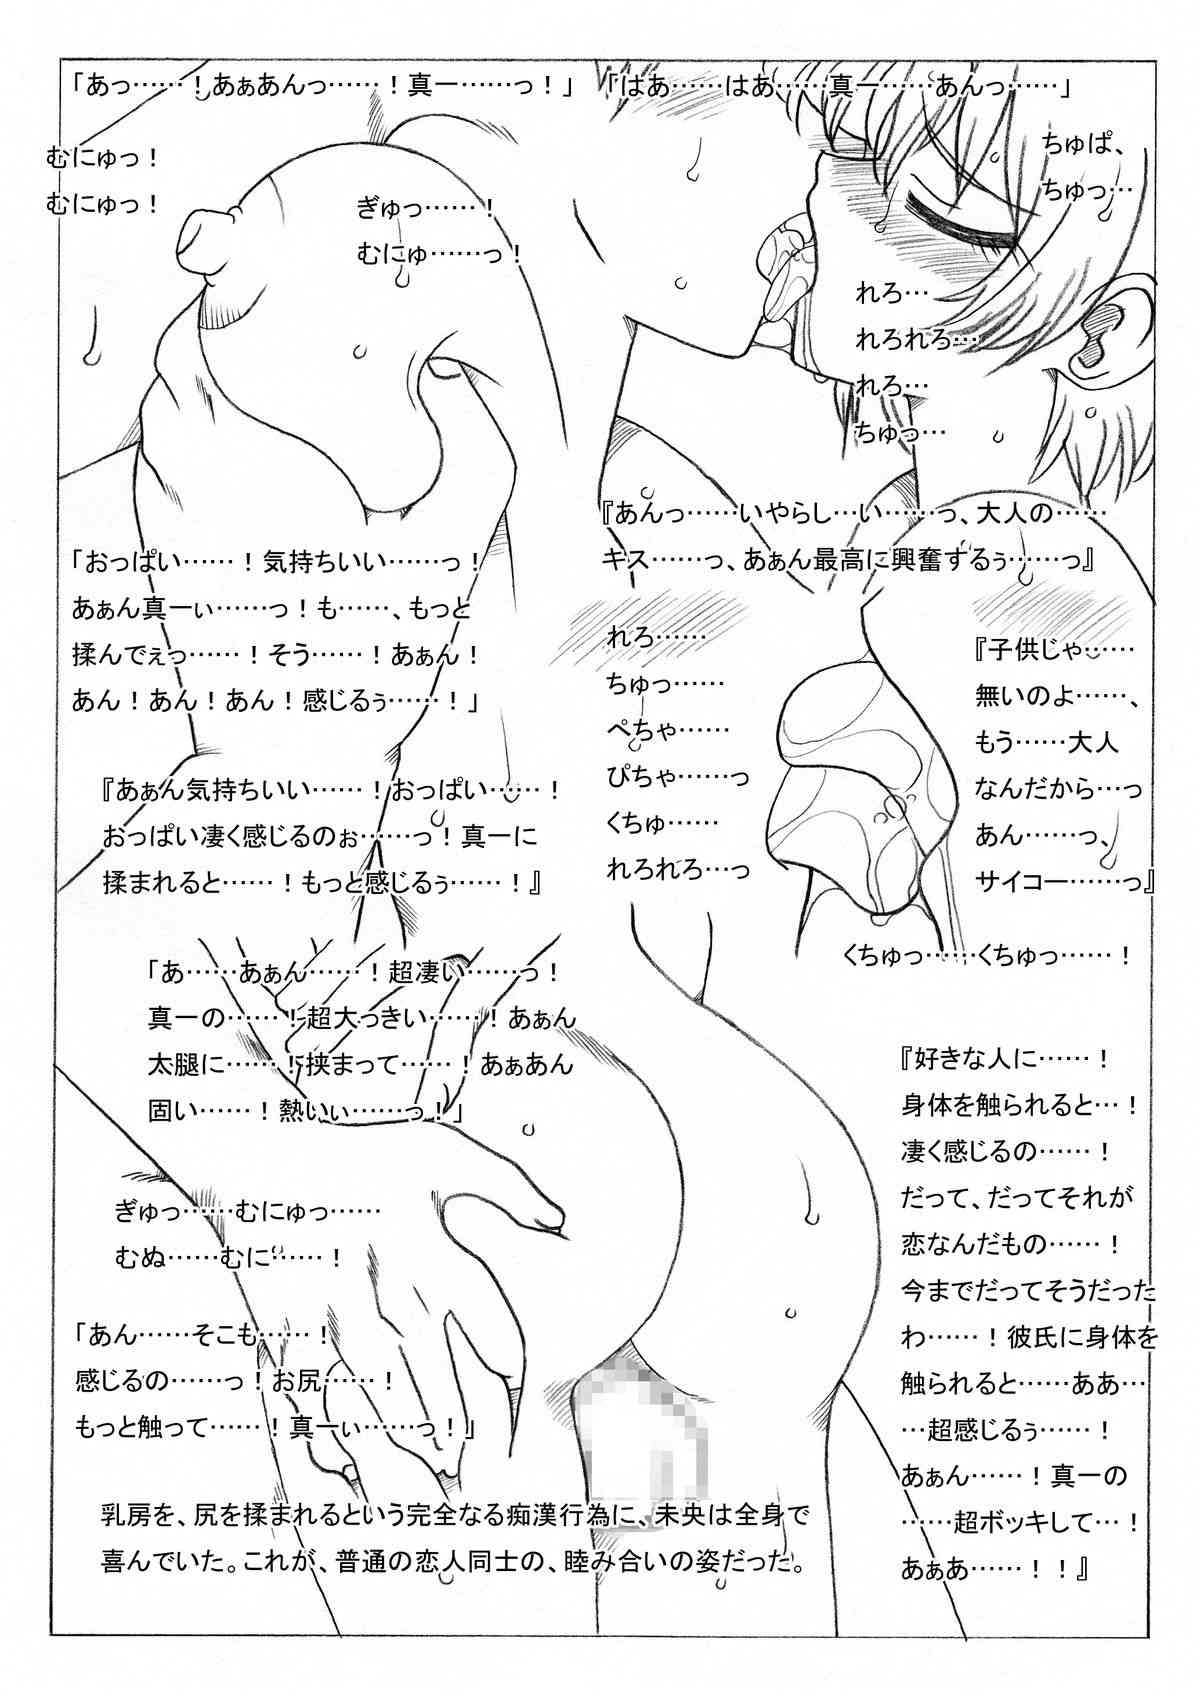 「あっ……！あぁあんっ……！真一……っ！」
「はあ……はあ……真一……あんっ……」
むにゅっ！
むにゅっ！
ぎゅっ……！
むにゅ……っ！
ちゅぱ、
ちゅっ…
れろ…
れろれろ…
れろ…
ちゅっ…
『あんっ……いやらし…い……っ、大人の……
キス……っ、あぁん最高に興奮するぅ……っ』
「おっぱい……！気持ちいい……っ！
あぁん真一ぃ……っ！も……、もっと
揉んでぇっ……！そう……！あぁん！
あん！あん！あん！感じるぅ……！」
れろ……
ちゅっ……
ぺちゃ……
ぴちゃ……っ
くちゅ……
れろれろ……っ
『子供じゃ……
無いのよ……、
もう……大人
なんだから…っ
あん……っ、
サイコー……っ』
『あぁん気持ちいい……！おっぱい……！
おっぱい凄く感じるのぉ……っ！真一に
揉まれると……！もっと感じるぅ……！』
くちゅっ……くちゅっ……！
「あ……あぁん……！超凄い……っ！
真一の……！超大っきい……！あぁん
太腿に……！挟まって……！あぁあん
固い……！熱いぃ……っ！」
『好きな人に……！
身体を触られると…！
凄く感じるの……！
だって、だってそれが
恋なんだもの……！
今までだってそうだった
わ……！彼氏に身体を
触られると……ああ…
…超感じるぅ……！
あぁん……！真一の
……超ボッキして…！
あぁあ……！！』
ぎゅっ……むにゅっ……
むぬ……むに……！
「あん……そこも……！
感じるの……っ！お尻……！
もっと触って……！真一ぃ……っ！」
乳房を、尻を揉まれるという完全なる痴漢行為に、未央は全身で
喜んでいた。これが、普通の恋人同士の、睦み合いの姿だった。